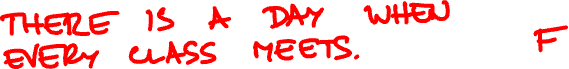 THERE IS A DAY WHEN
EVERY CLASS MEETS. F